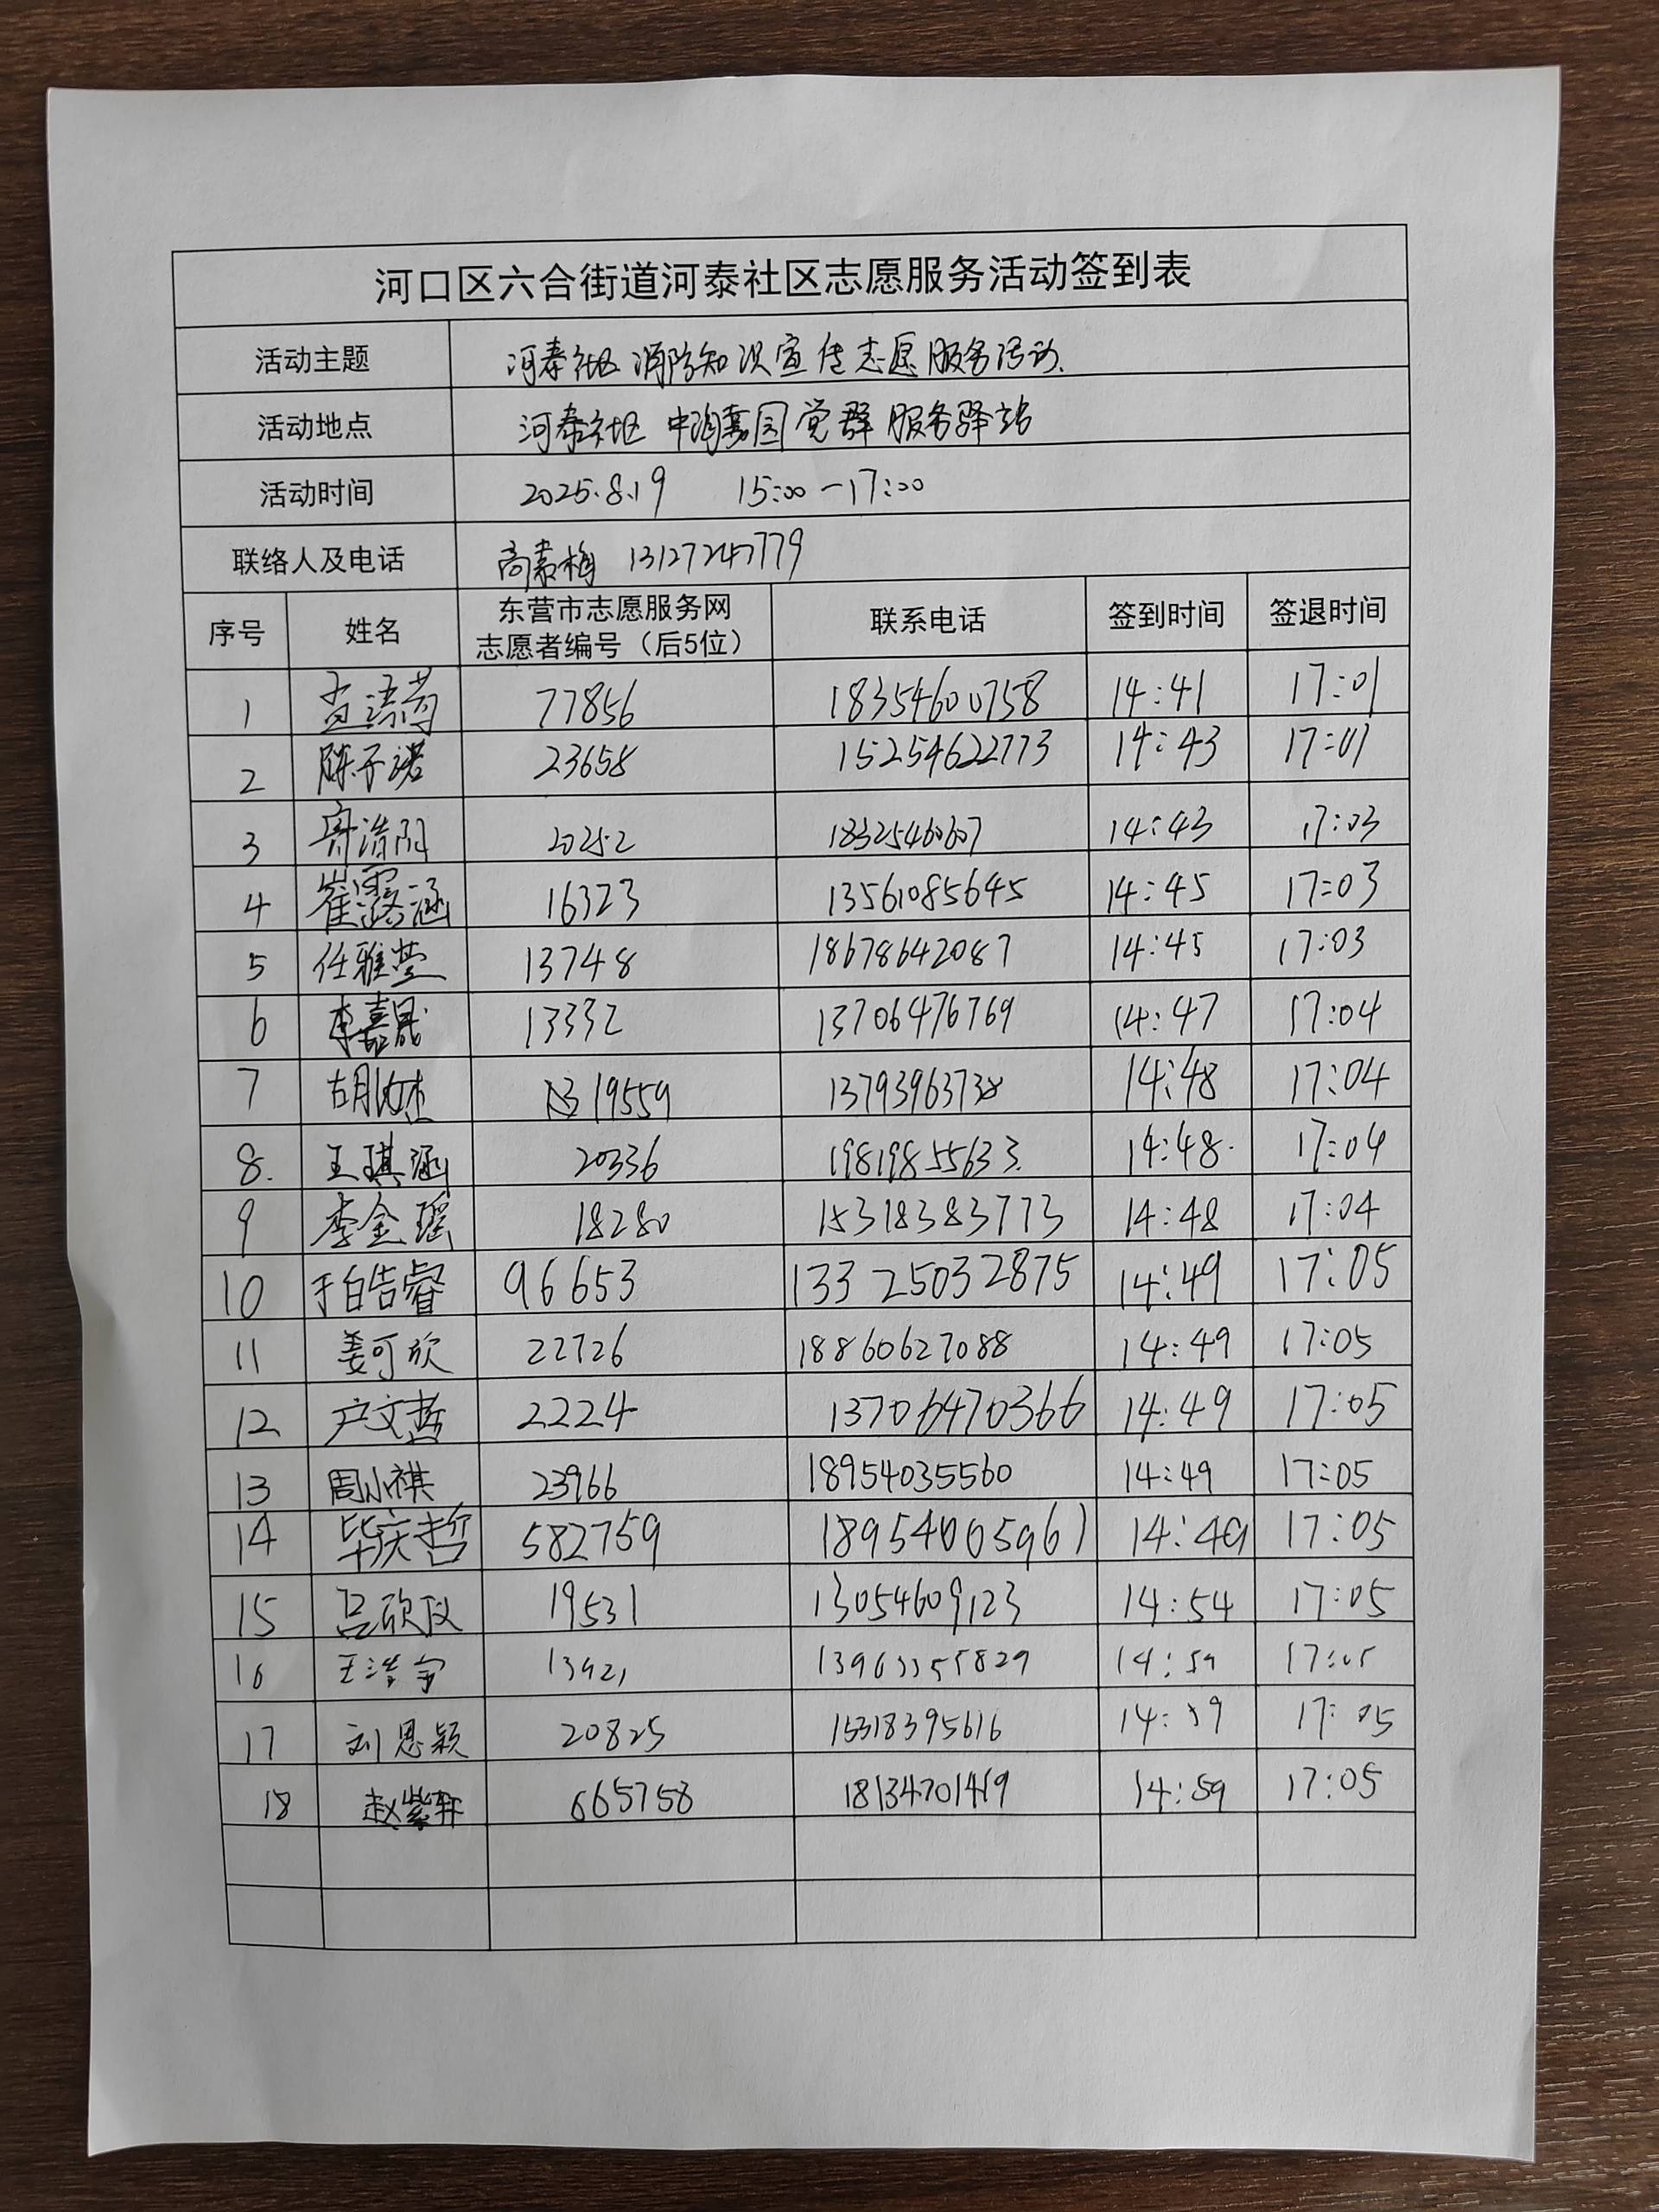 河口区六合街道河泰社区志愿服务活动签到表
活动主题 河泰社区消防知识宣传志愿服务活动.
活动地点 河泰社区 中海嘉园党群服务驿站
活动时间 2025.8.19 15:00-17:00
联络人及电话 13127247779
序号 姓名 东营市志愿服务网 志愿者编号（后5位） 联系电话 签到时间 签退时间
1 77856 18354600758 14:41 17:01
2 陈子诺 23658 15254622773 14:43 17:01
3 20252 14:43 17:03
4 崔露涵 16323 13561085645 14:45 17:03
5 任雅萱 13748 18678642087 14:45 17:03
6 李嘉晟 13332 13706476769 14:47 17:04
7 19559 14:48 17:04
8. 王琪涵 20336 19819855633. 14:48. 17:04
9 李金瑶 18280 15318383773 14:48 17:04
10 于皓睿 96653 13325032875 14:49 17:05
11 姜可欣 22726 18860627088 14:49 17:05
12 卢文哲 2224 13706470366 14:49 17:05
13 周小祺 23966 18954035560 14:49 17:05
14 毕庆哲 582759 18954005961 14:49 17:05
15 吕欣仪 19531 13054609123 14:54 17:05
16 14:59 17:05
17 刘恩颖 20825 15318395616 17:05
18 赵紫轩 665758 18134701419 14:59 17:05